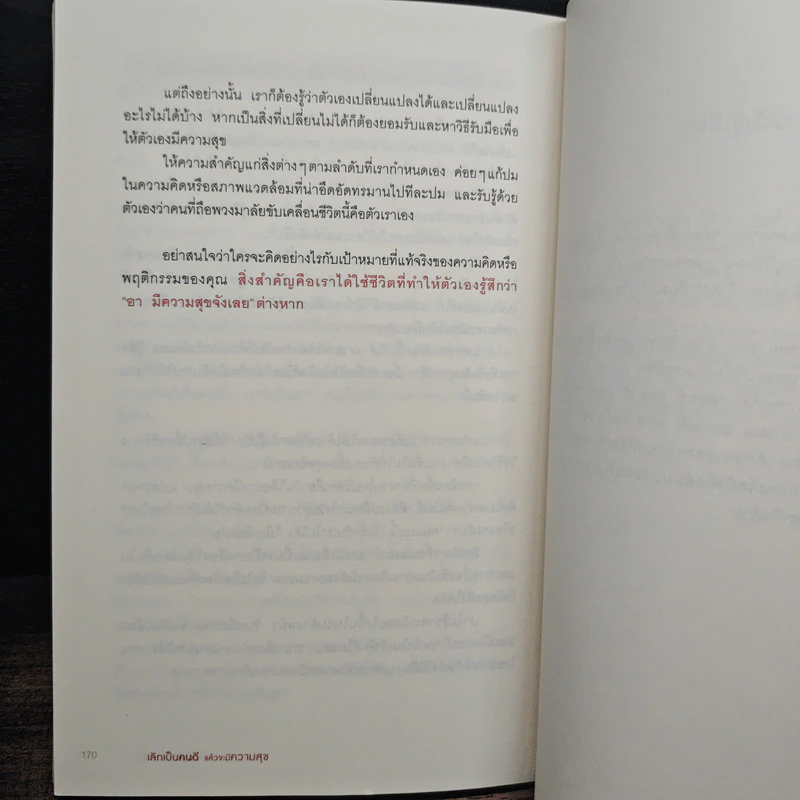 แต่ถึงอย่างนั้น เราก็ต้องรู้ว่าตัวเองเปลี่ยนแปลงได้และเปลี่ยนแปลง
อะไรไม่ได้บ้าง หากเป็นสิ่งที่เปลี่ยนไม่ได้ก็ต้องยอมรับและหาวิธีรับมือเพื่อ
ให้ตัวเองมีความสุข
ให้ความสำคัญแก่สิ่งต่างๆตามลำดับที่เรากำหนดเอง ค่อยๆแก้ปม
ในความคิดหรือสภาพแวดล้อมที่น่าอึดอัดทรมานไปทีละปม และรับรู้ด้วย
ตัวเองว่าคนที่ถือพวงมาลัยขับเคลื่อนชีวิตนี้คือตัวเราเอง
อย่าสนใจว่าใครจะคิดอย่างไรกับเป้าหมายที่แท้จริงของความคิดหรือ
พฤติกรรมของคุณ สิ่งสำคัญคือเราได้ใช้ชีวิตที่ทำให้ตัวเองรู้สึกว่า
"อา มีความสุขจังเลย" ต่างหาก
170 เลิกเป็นคนดี แล้วจะมีความสุข